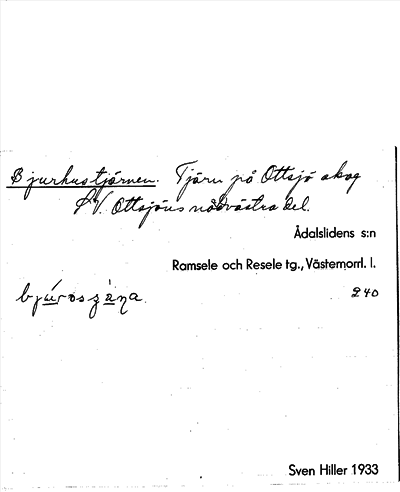 Bjurhustjärnen. Tjärn på Ottsjö skog
V. Ottsjöns nordvästra del.
Ådalslidens s:n
Ramsele och Resele tg., Västernorrl. l.
240
Sven Hiller 1933